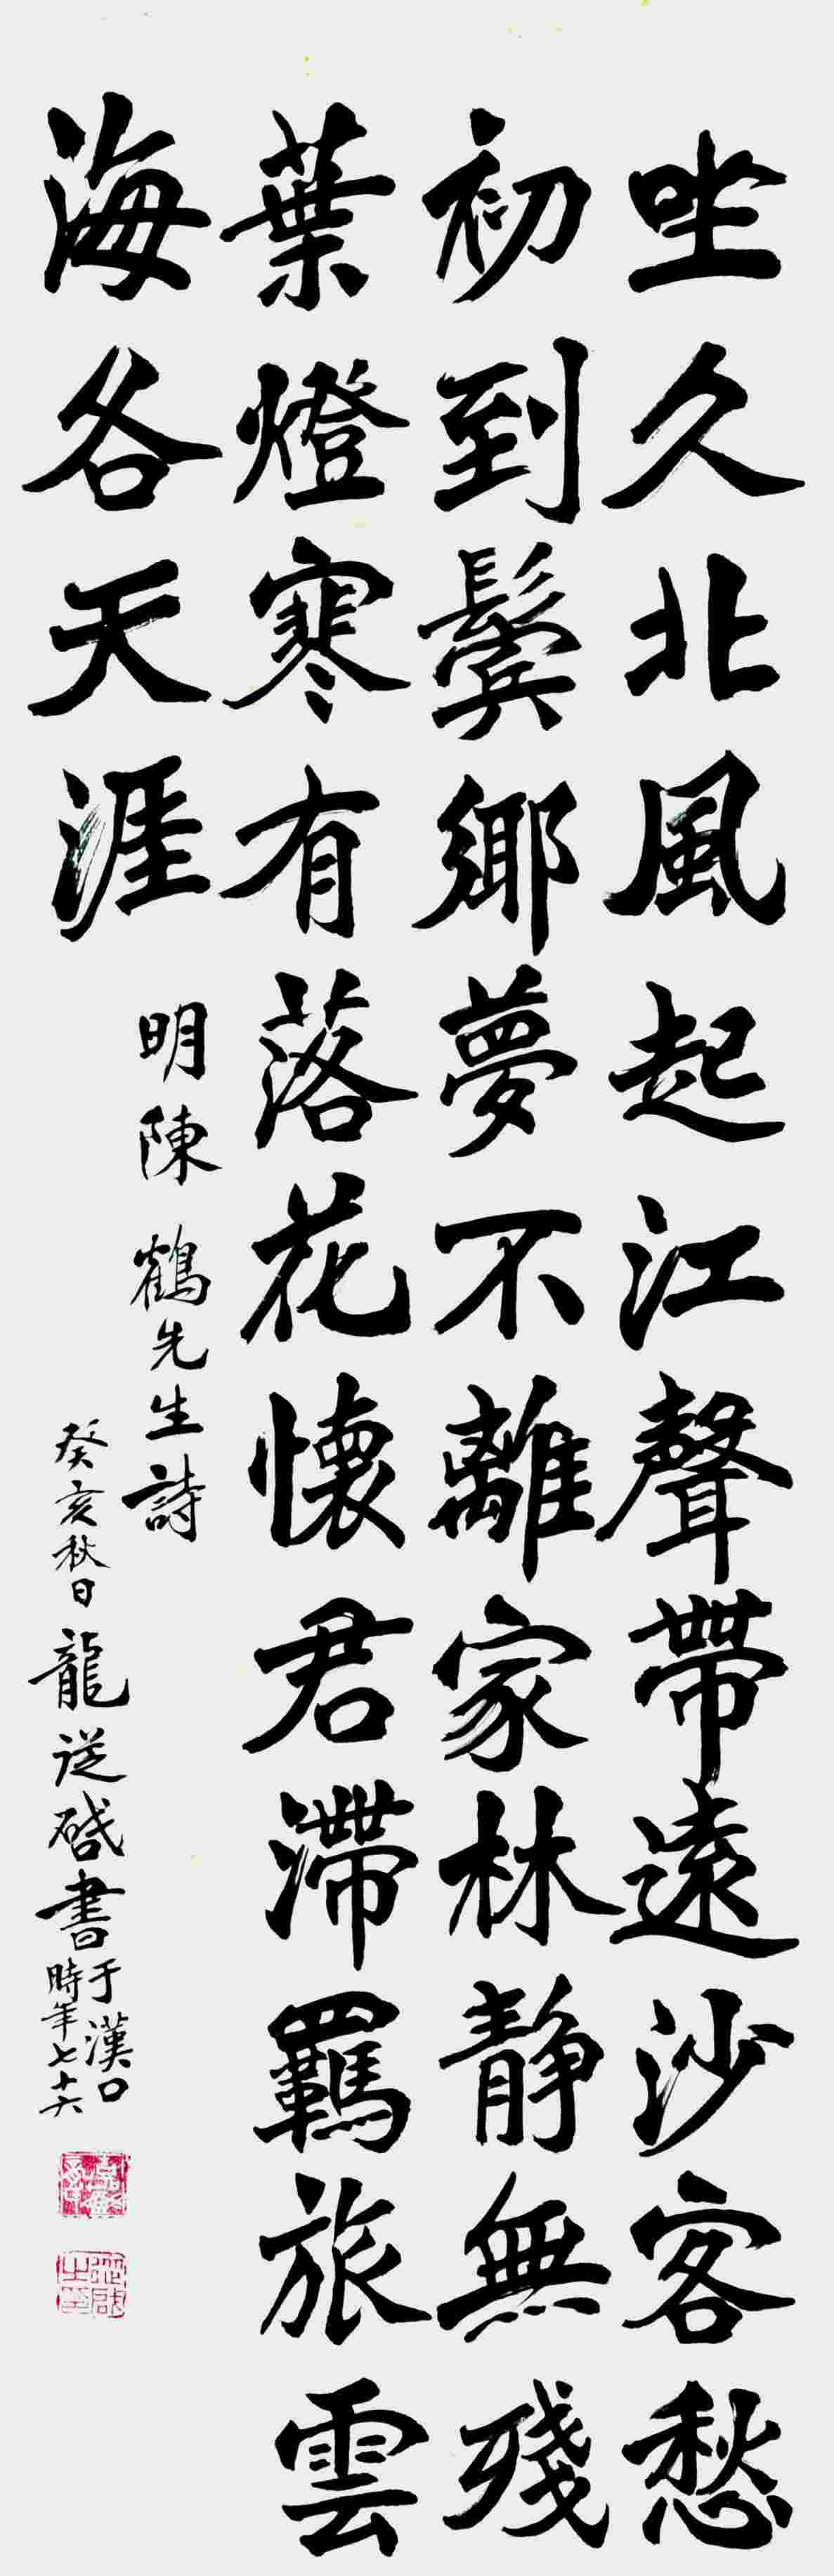 坐久北風起江聲帶遠沙客愁
初到鬢鄉夢不離家林靜無殘
葉燈寒有落花懷君滯羈旅雲
海各天涯
明陳鶴先生詩
癸亥秋日龍從啟書于漢口
時年七十六